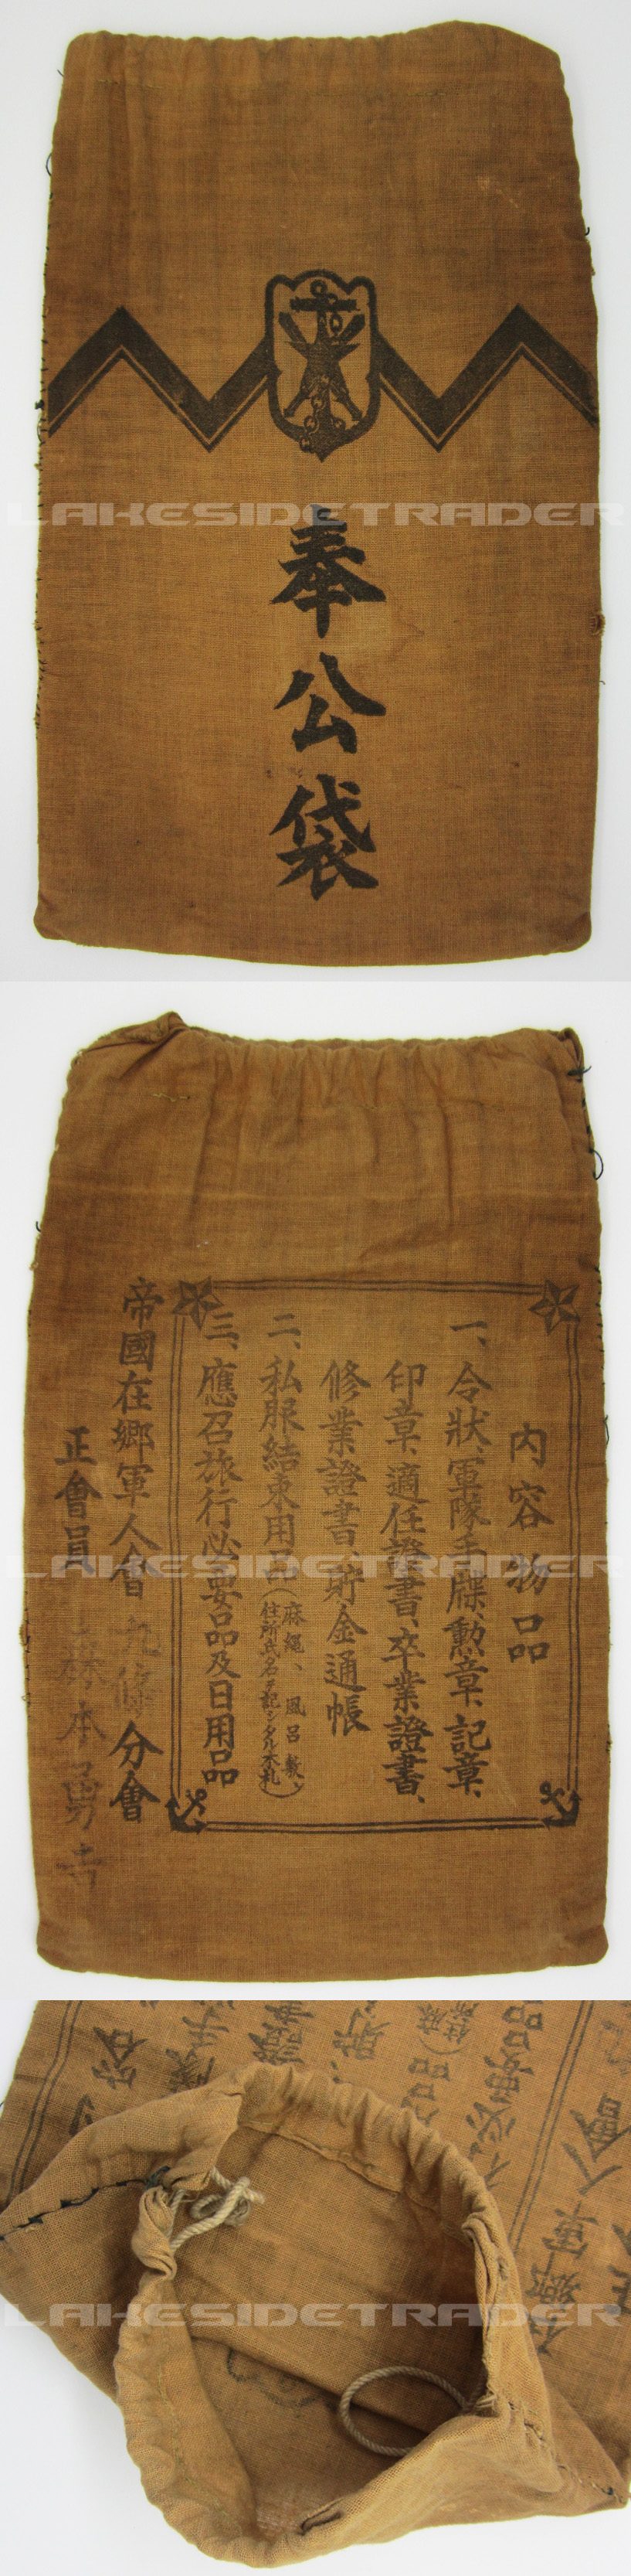 奉公袋
LAKESIDETRADER
内容物品
一、令状、軍隊手牒、勲章、記章、
印章、適任證書、卒業證書、
修業證書、貯金通帳
二、私服結束用品(麻縄、風呂敷、住所氏名ヲ記シタル木札)
三、應召旅行必要品及日用品
帝國在郷軍人會 九條 分會
正會員 森本
LAKESIDETRADER
LAKESIDETRADER